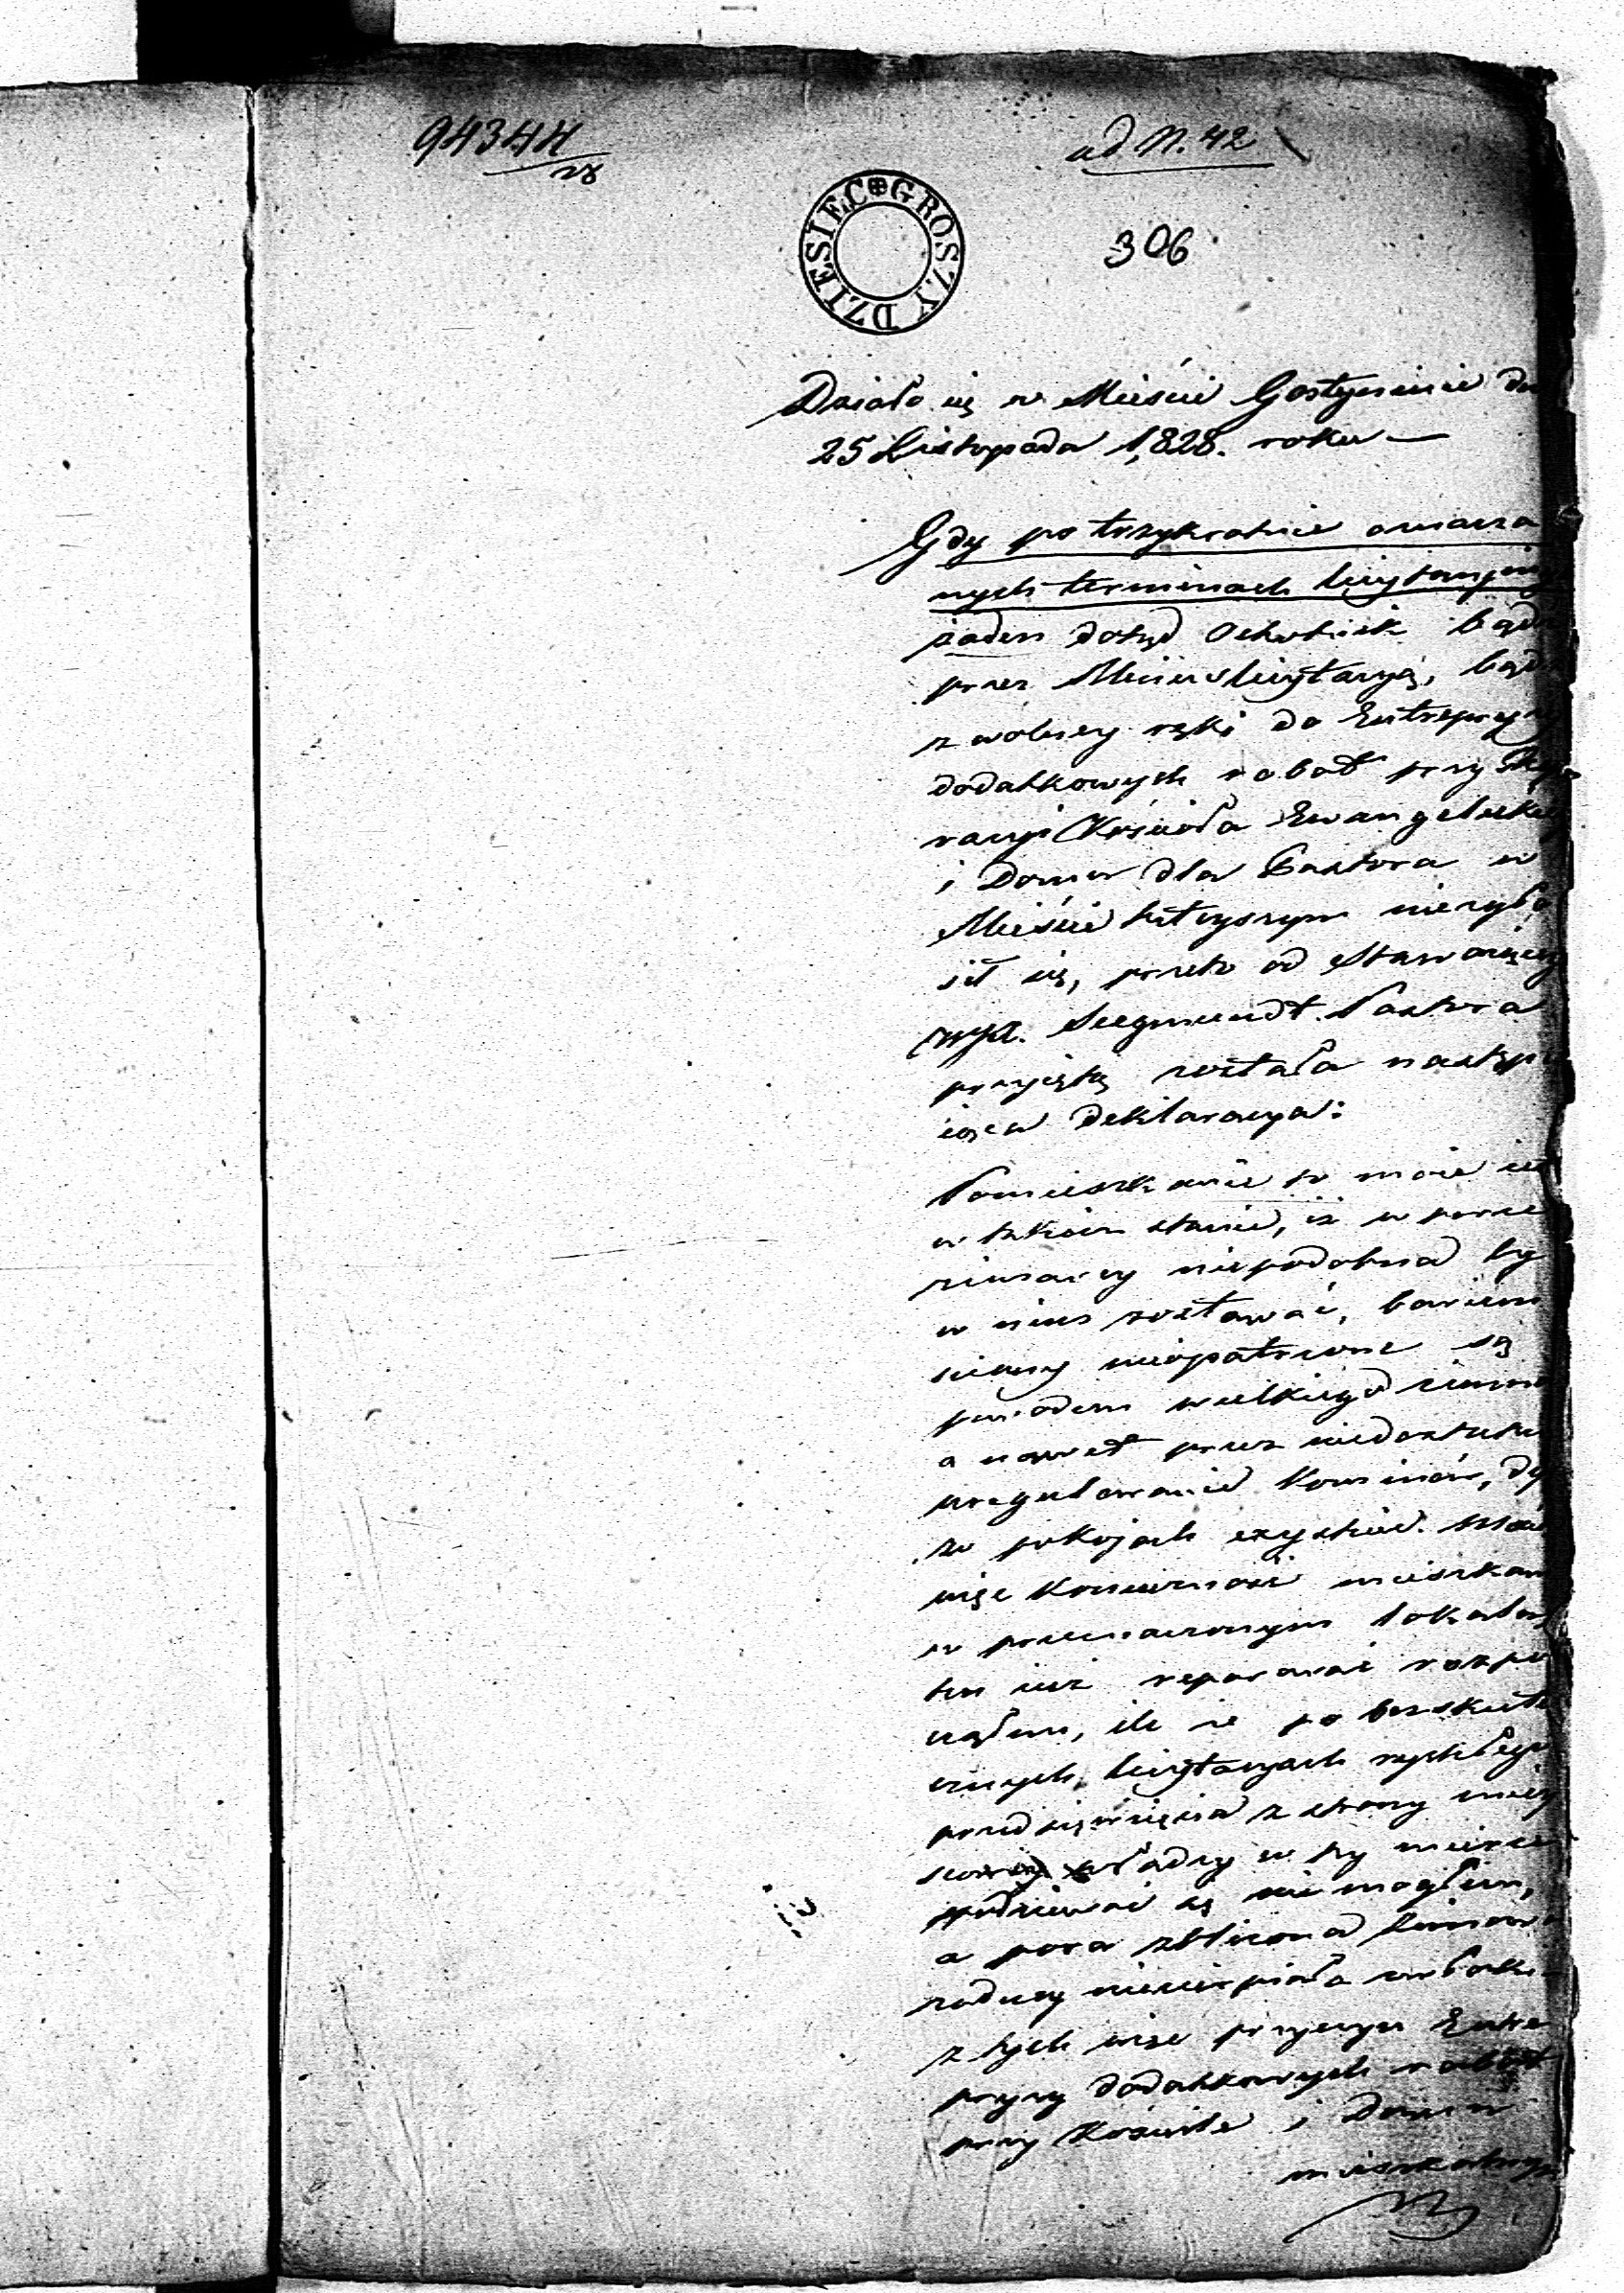 94344/28
ad N. 42
DZIESIĘC GROSZY
306
Działo się w Mieście Gostyninie dn
25 Listopada 1,828. roku —
Gdy po trzykrotnie oznacza
nych terminach licytacyiny
żaden dotąd Ochotnik bądź
przez Minus licytacyą, bądź
z wolney ręki do Entrepryzy
dodatkowych robót przy Repa
racyi Kościoła Ewangelickie
i Domu dla Pastora w
Mieście tutejszym niezgło
sił się, przeto od Stawaiącego
WJX. Siegmundt Pastora
przyiętą została następu
iąca deklaracya:
Pomieszkanie to moie iest
w takim stanie, iż w porze
zimowey niepodobna by
w nim zostawać, bowiem
ściany nieopatrzone są
powodem wielkiego zimna
a nawet przez niedostateczne
uregulowanie kominów, dym
w pokojach exystuie. Maiąc
więc konieczność mieszkania
w przeznaczonym lokalu,
ten iuż reparować rozpo
cząłem, ile że po bezskute
cznych licytacyach rychłego
przedsięwzięcia z strony miey
scowey władzy w tey mierze
spodziewać się nie mogłem,
a pora zbliżona zimowa
żadney niecierpiała zwłoki
z tych więc przyczyn Entre
pryzy dodatkowych robót
przy Kościele i Domu
mieszkalnym